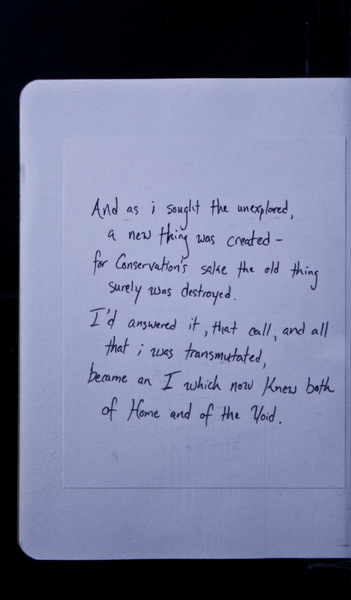 And as i sought the unexplored,
a new thing was created –
for Conservation's sake the old thing
surely was destroyed.
I'd answered it, that call, and all
that i was transmutated,
became an I which now Knew both
of Home and of the Void.